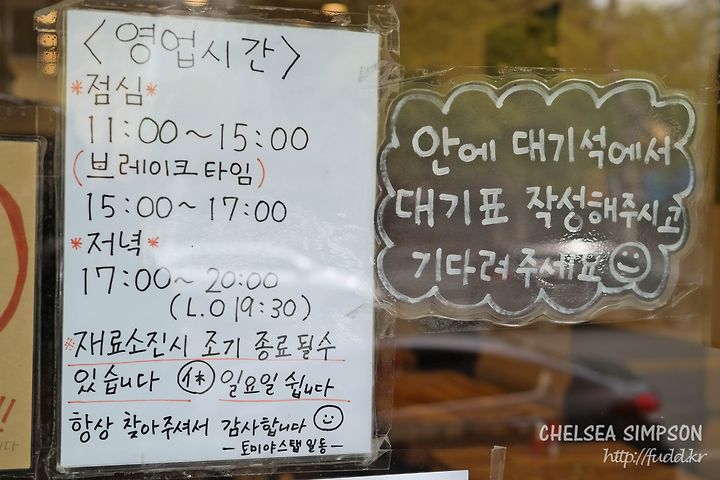 <영업시간>
*점심*
11:00~15:00
(브레이크타임)
15:00~17:00
*저녁*
17:00~20:00
(L.O 19:30)
※재료소진시 조기 종료될수
있습니다 休 일요일 쉽니다
항상 찾아주셔서 감사합니다
-토미야스탭 일동-
안에 대기석에서
대기표 작성해주시고
기다려주세요
!!
니다
CHELSEA SIMPSON
http://fudd.kr